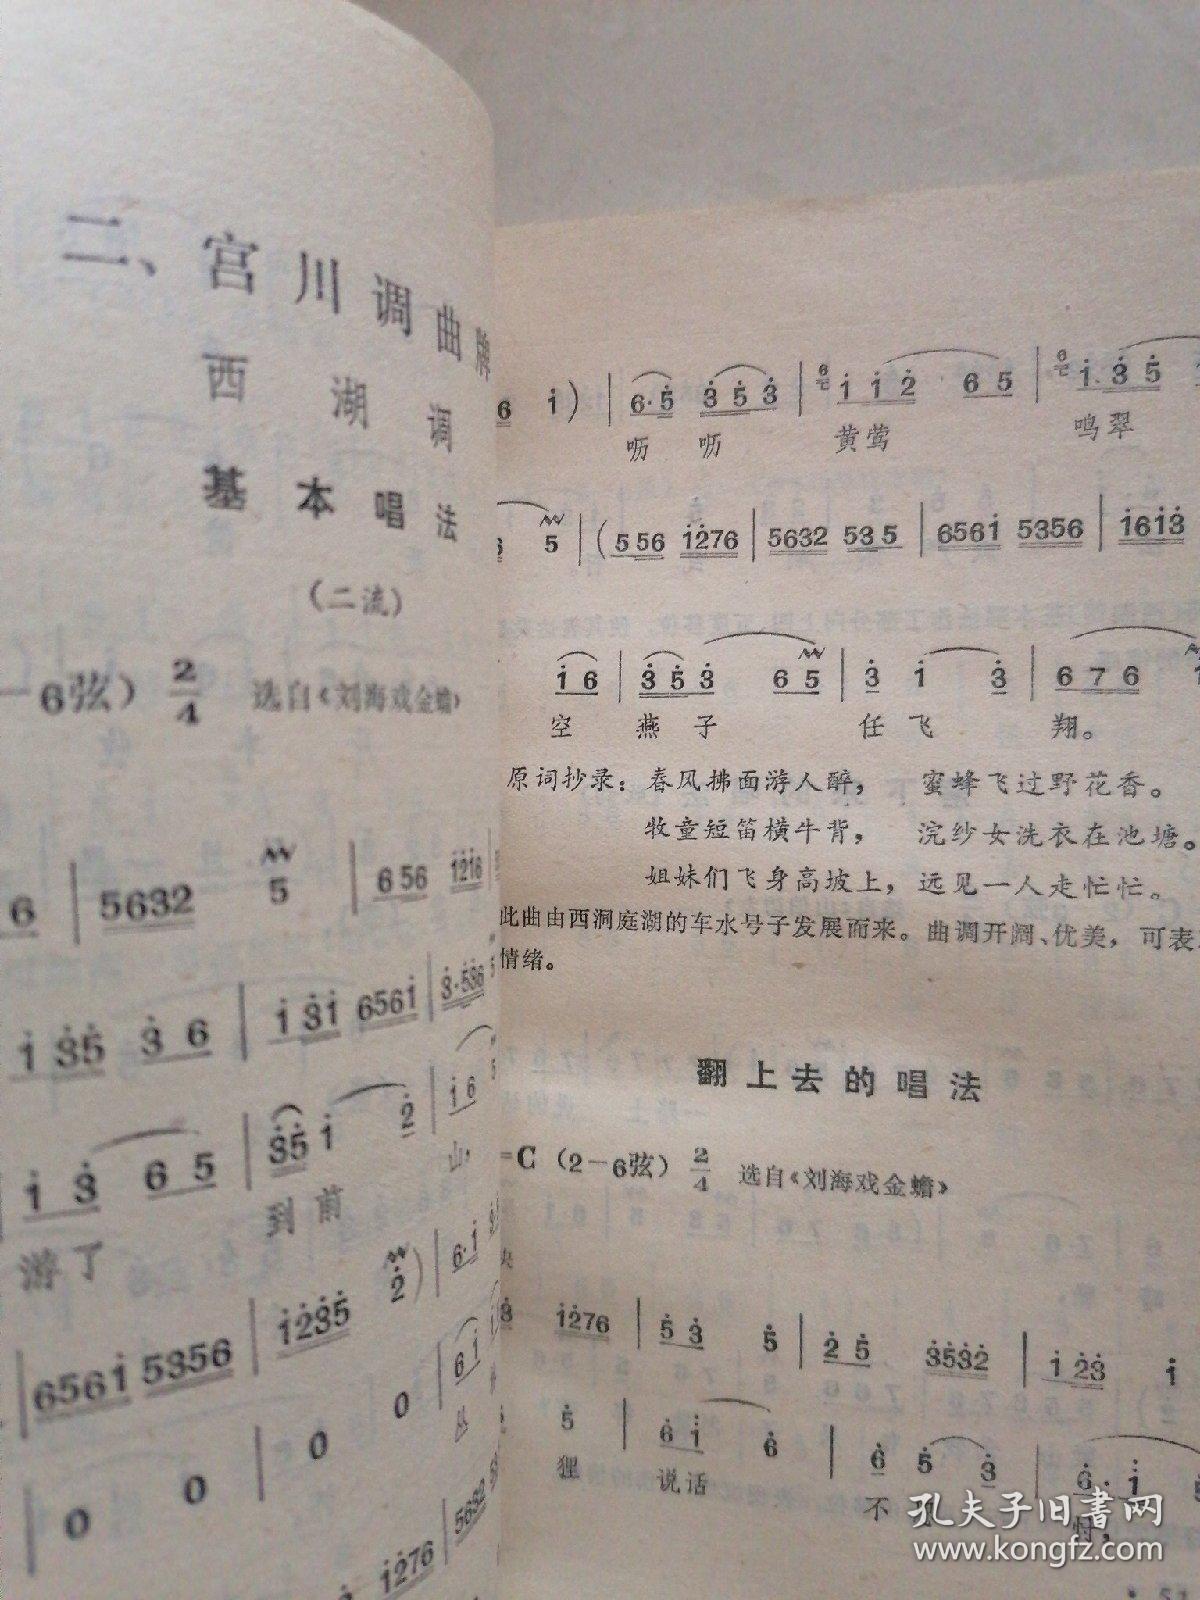 二、宫川调曲牌
西湖调
基本唱法
(二流)
—6弦) 2/4 选自《刘海戏金蟾》
6 | 5632 5 | 656 1216
1 35 3 6 | 1 31 6561 | 3·536
1 3 6 5 | 35 1 2 | 1 6
游了 到前 山,
6561 5356 | 1235 2) | 6·1
0 0 | 0 0 | 6 1
丛
1276 | 5632
6 1) | 6·5 3 5 3 | 1 1 2 6 5 | 1. 3 5
呖 呖 黄莺 鸣翠
5 | (5 56 1276 | 5632 53 5 | 6561 5356 | 1613
1 6 | 3 5 3 6 5 | 3 1 3 | 6 7 6
空 燕子 任飞 翔。
原词抄录:春风拂面游人醉, 蜜蜂飞过野花香。
牧童短笛横牛背, 浣纱女洗衣在池塘。
姐妹们飞身高坡上,远见一人走忙忙。
此曲由西洞庭湖的车水号子发展而来。曲调开阔、优美,可表
情绪。
翻上去的唱法
=C (2—6弦) 2/4 选自《刘海戏金蟾》
3 1276 | 5 3 5 | 2 5 3532 | 1 23 1
5 | 6 1 6 | 6 5 3 | 6·1
狸 说话 不
孔夫子旧书网
www.kongfz.com